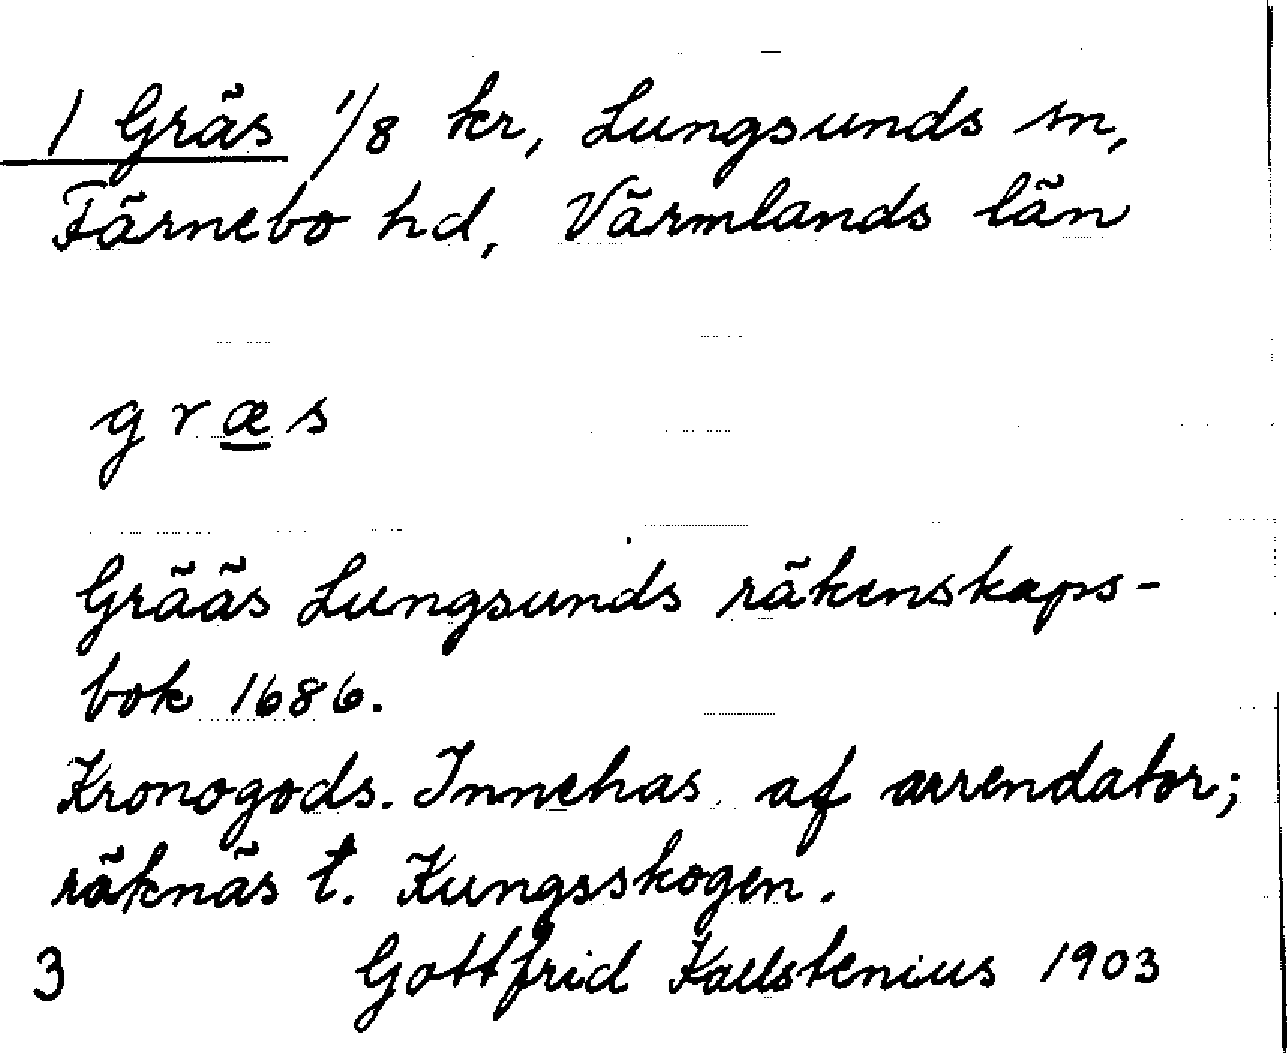 1 Gräs 1/8 kr, Lungsunds sn,
Färnebo hd, Värmlands län
græs
Grääs Lungsunds räkenskaps-
bok 1686.
Kronogods. Innehas af arrendator;
räknäs t. Kungsskogen.
3 Gottfrid Kallstenius 1903